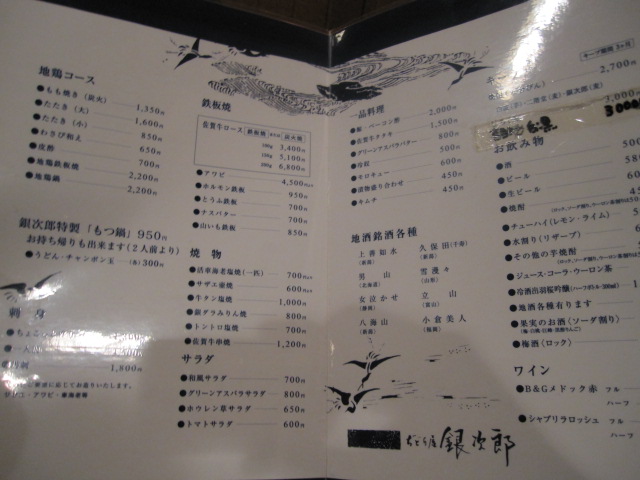 地鶏コース
●もも焼き(炭火) 1,350円
●たたき(大) 1,600円
●たたき(小) 850円
●わさび和え 650円
●皮酢 700円
●地鶏鉄板焼 2,200円
●地鶏鍋 2,200円
銀次郎特製「もつ鍋」950円
お持ち帰りも出来ます(2人前より)
●うどん・チャンポン玉 (各)300円
刺身
1,800円
鉄板焼
佐賀牛ロース 鉄板焼 または 炭火焼
100g 3,400円
150g 5,100円
200g 6,800円
●アワビ 4,500円より
●ホルモン鉄板 950円
●とうふ鉄板 700円
●ナスバター 700円
●山いも鉄板 850円
焼物
●活車海老塩焼(一匹) 700円より
●サザエ壷焼 600円より
●牛タン塩焼 1,000円
●銀ダラみりん焼 800円
●トントロ塩焼 700円
●佐賀牛串焼 1,200円
サラダ
●和風サラダ 700円
●グリーンアスパラサラダ 800円
●ホウレン草サラダ 650円
●トマトサラダ 600円
一品料理
2,000円
●佐賀牛タタキ 1,500円
●グリーンアスパラバター 800円
●冷奴 500円
●モロキュー 450円
●漬物盛り合わせ 450円
●キムチ 450円
地酒銘酒各種
上善如水(新潟) 久保田(千寿)(新潟)
男山(北海道) 雪漫々(山形)
女泣かせ(静岡) 立山(富山)
八海山(新潟) 小倉美人(福岡)
銀次郎
キープ期間 3ヶ月
2,700
3,000
お飲み物
●酒
●ビール
●生ビール
●焼酎
●チューハイ(レモン・ライム)
●水割り(リザーブ)
●その他の芋焼酎
●ジュース・コーラ・ウーロン茶
●冷酒出羽桜吟醸(ハーフボトル・300ml)
●地酒各種有ります
●果実のお酒(ソーダ割り)
●梅酒(ロック)
ワイン
●B&Gメドック赤 フル
ハーフ
●シャブリラロッシュ フル
ハーフ